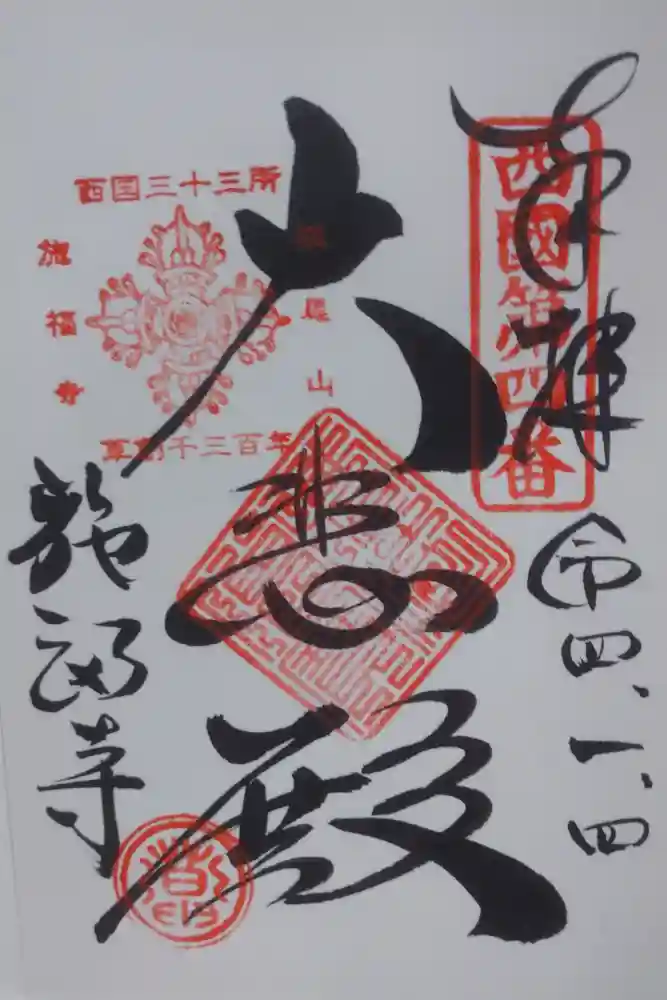 奉拝
西國第四番
令四、一、四
大悲殿
西国三十三所
槇尾山
施福寺
草創千三百年
施福寺